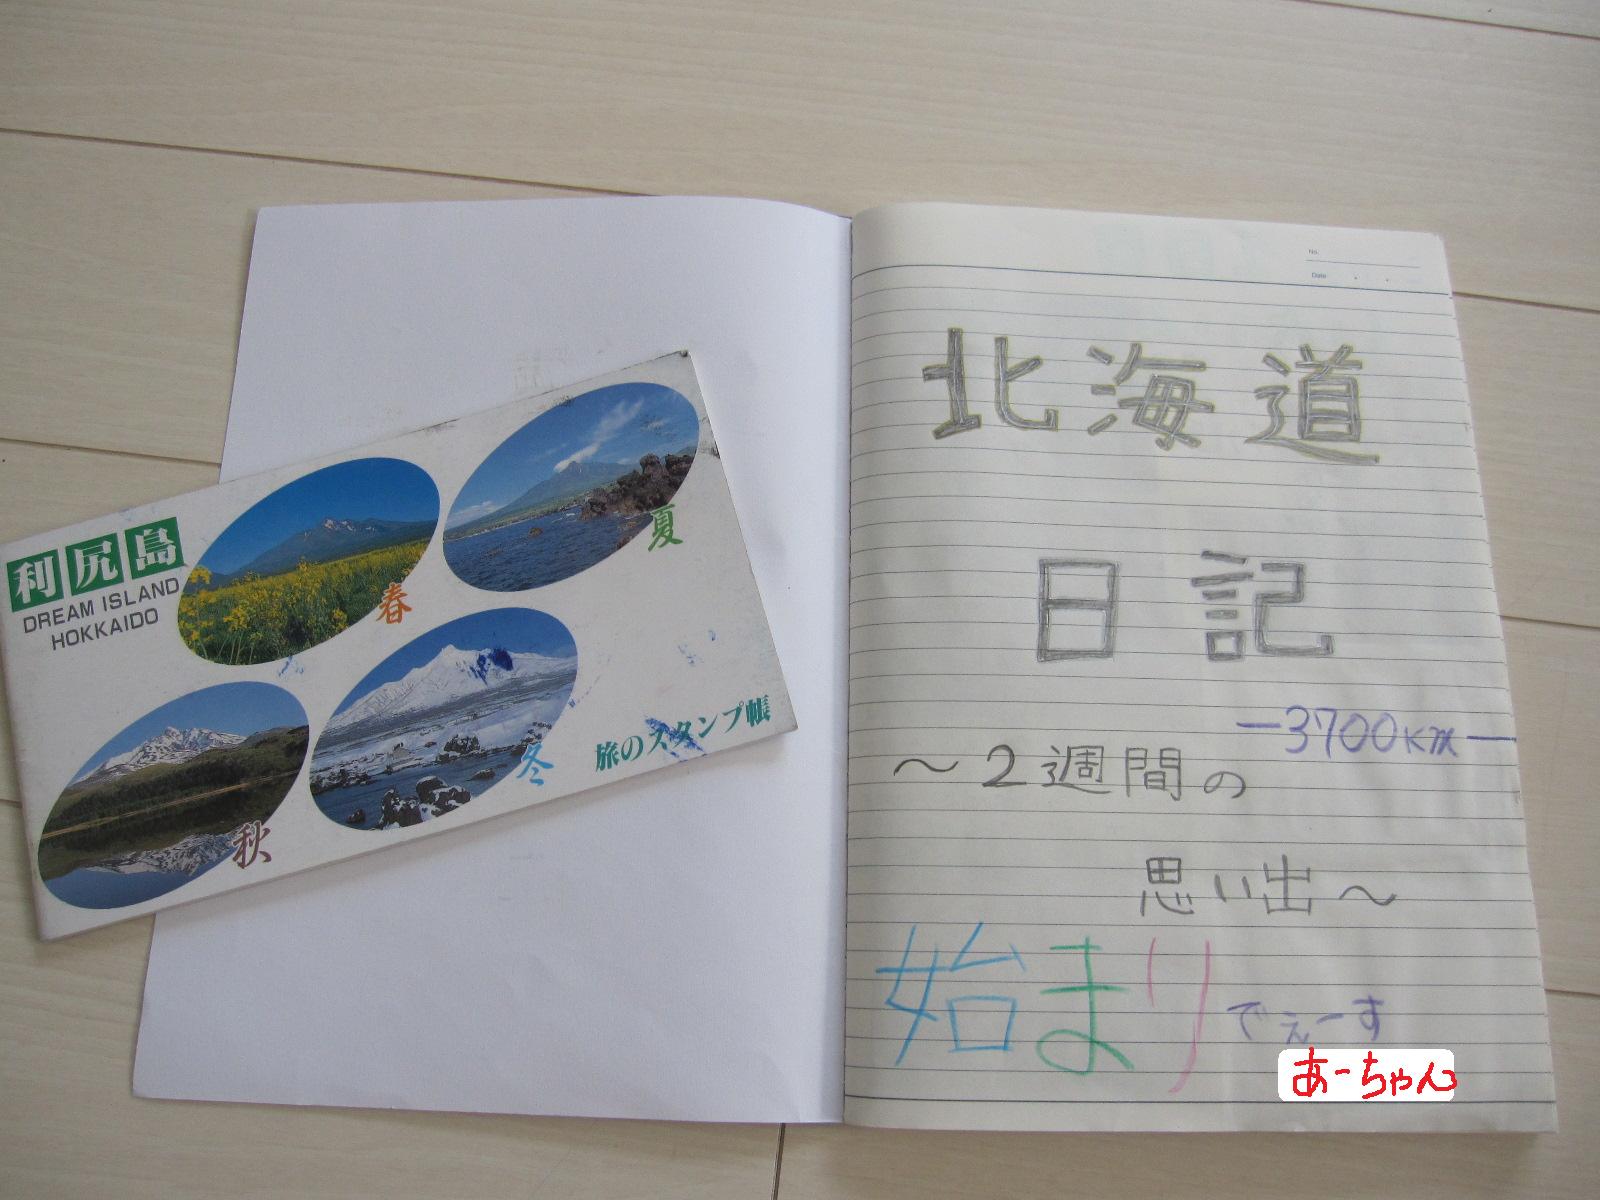 利尻島
DREAM ISLAND
HOKKAIDO
春
夏
秋
冬
旅のスタンプ帳
No.
Date
北海道
日記
ー3700kmー
～2週間の
思い出～
始まりでぇーす
あーちゃん